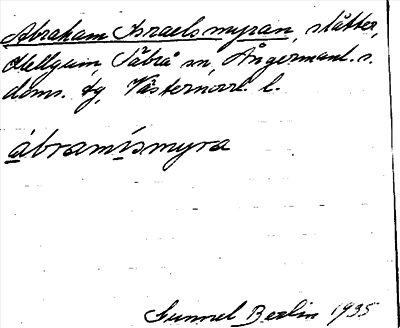 Abraham Israelsmyran, slåtter,
Hellgum, Säbrå sn, Ångermanl. s.
doms. fg, Västernorrl. l.
ábramísmyra
Gunnel Berlin 1935